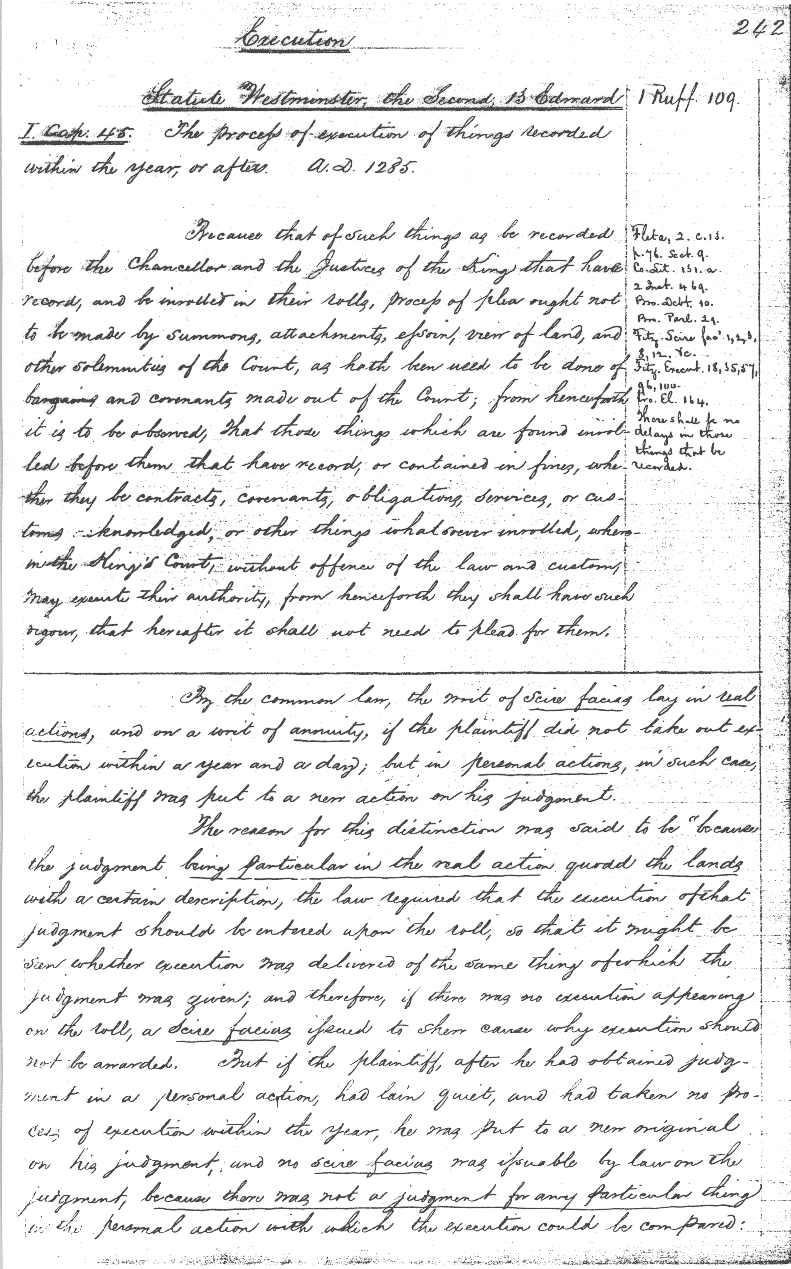 242
Execution
Statute Westminster, the Second, 13 Edward
I. Cap. 45. The process of execution of things recorded
within the year, or after. A.D. 1285.
1 Ruff. 109.
Because that of such things as be recorded
before the Chancellor and the Justices of the King that have
record, and be inrolled in their rolls, process of plea ought not
to be made by summons, attachments, essoin, view of land, and
other solemnities of the Court, as hath been used to be done of
bargains and covenants made out of the Court; from henceforth
it is to be observed, that those things which are found inrol-
led before them that have record, or contained in fines, whe-
ther they be contracts, covenants, obligations, services, or cus-
toms knowledged, or other things whatsoever inrolled, where-
in the King's Court, without offence of the law and custom,
may execute their authority, from henceforth they shall have such
vigour, that hereafter it shall not need to plead for them.
Fleta, 2. c. 13.
p. 76. Sect. 9.
Co. Lit. 131. a.
2 Inst. 469.
Bro. Debt. 10.
Bro. Parl. 29.
Fitz. Scire fac' 1, 2, 3,
8, 12, &c.
Fitz. Execut. 18, 35, 57,
96, 100.
Cro. El. 164.
There shall be no
delays in those
things that be
recorded.
By the common law, the writ of scire facias lay in real
actions, and on a writ of annuity, if the plaintiff did not take out ex-
ecution within a year and a day; but in personal actions, in such case,
the plaintiff was put to a new action on his judgment.
The reason for this distinction was said to be "because
the judgment being particular in the real action quoad the lands
with a certain description, the law required that the execution of that
judgment should be entered upon the roll, so that it might be
seen whether execution was delivered of the same thing of which the
judgment was given; and therefore, if there was no execution appearing
on the roll, a scire facias issued to shew cause why execution should
not be awarded. But if the plaintiff, after he had obtained judg-
ment in a personal action, had lain quiet, and had taken no pro-
cess of execution within the year, he was put to a new original
on his judgment, and no scire facias was issuable by law on the
judgment, because there was not a judgment for any particular thing
in the personal action with which the execution could be compared: